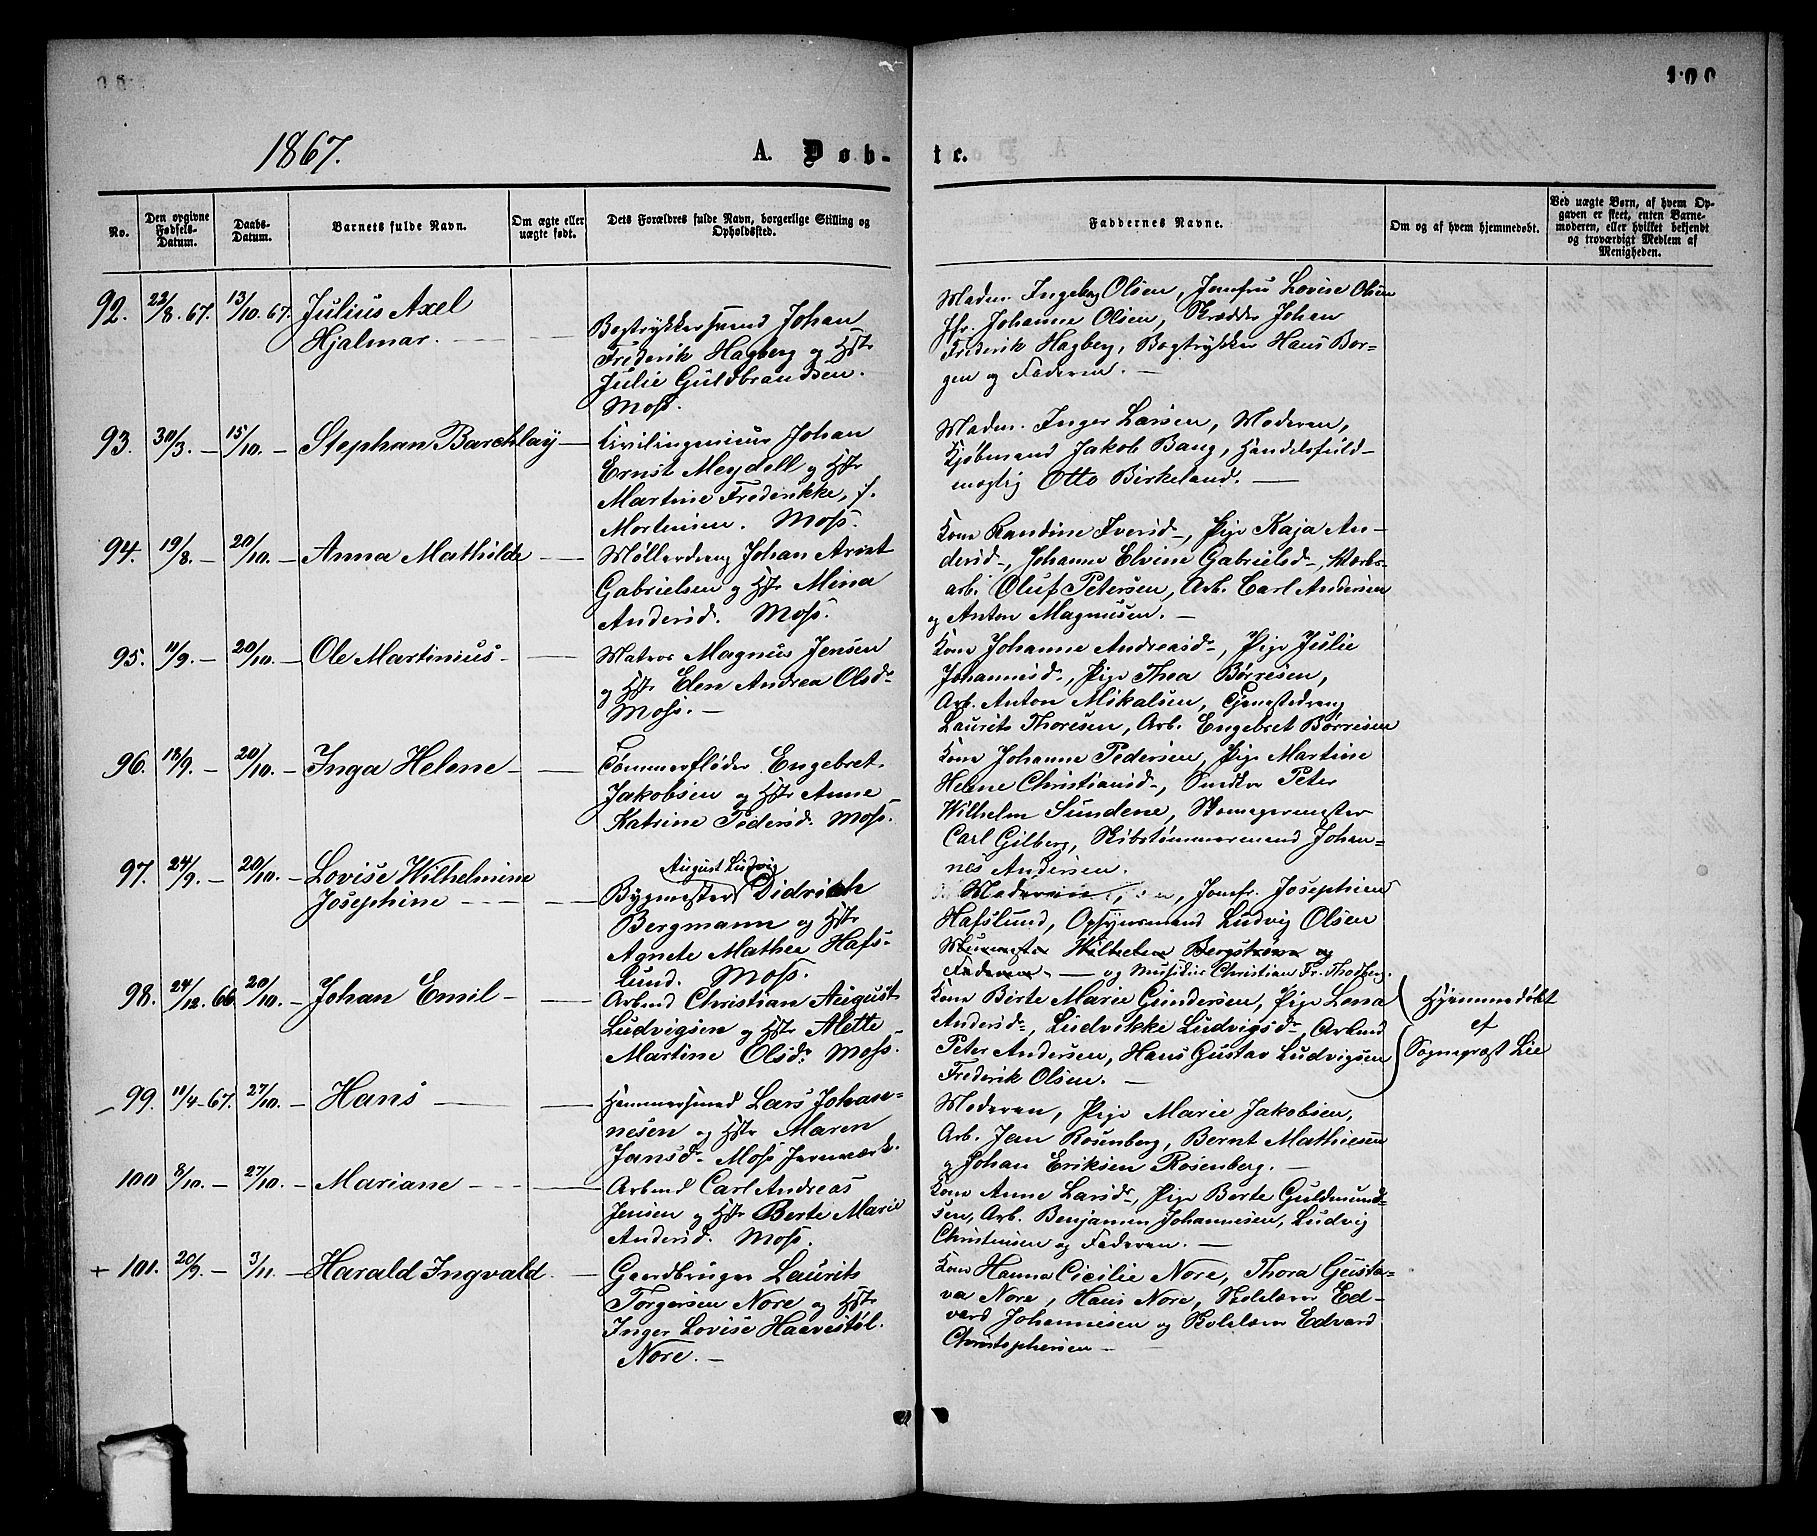 100
1867.
A. Døb-
te.
No.
Den opgivne
Fødsels-
Datum.
Daabs-
Datum.
Barnets fulde Navn.
Om ægte eller
uægte født.
Dets Forældres fulde Navn, borgerlige Stilling og
Opholdssted.
Faddernes Navne.
Om og af hvem hjemmedøbt.
Ved uægte Børn, af hvem Op-
gaven er skeet, enten Barne-
moderen, eller hvilket bekjendt
og troværdigt Medlem af
Menigheden.
92. 22/8.67. 13/10.67. Julius Axel
Hjalmar.
Bogtrykkersvend Johan
Frederik Hagberg og Hstr
Julie Guldbrandsen.
Moss.
Madm. Ingeborg Olsen, Jomfru Lovise Olsen
Jfr. Johanne Olsen, Skrædder Johan
Frederik Hagberg, Bogtrykker Hans Bor-
gen og Faderen. —
93. 30/3. — 15/10. — Stephan Barchlay —
Civilingeniør Johan
Ernst Meydell og Hstr
Martine Frederikke, f.
Mortensen. Moss.
Madm. Inger Larsen, Moderen,
Kjøbmand Jakob Bang, Handelsfuld-
mægtig Otto Birkeland. —
94. 19/8. — 20/10. — Anna Mathilde —
Møllerdreng Johan Arnt
Gabrielsen og Hstr Mina
Andersd. Moss.
Kone Randine Iversd-, Pige Kaja An-
dersd-, Johanne Elvine Gabrielsd-, Værks-
arb. Oluf Petersen, Arb. Carl Andersen
og Anton Magnusen. —
95. 11/9. — 20/10. — Ole Martinius —
Matros Magnus Jensen
og Hstr Elen Andrea Olsd-
Moss. —
Kone Johanne Andreasd-, Pige Julie
Johannesd-, Pige Thea Børresen,
Arb. Anton Mikalsen, Tjenestedreng
Laurits Thoresen, Arb. Engebret Børresen
96. 18/9. — 20/10. — Inga Helene —
Tømmerfløder Engebret
Jakobsen og Hstr Anne
Katrine Pedersd. Moss.
Kone Johanne Pedersen, Pige Martine
Helene Christiansd-, Snedker Peter
Wilhelm Sundene,
Carl Gilberg, Skibstømmermand Johan-
nes Andersen.
97. 24/9. — 20/10. — Lovise Wilhelmine
Josephine —
August Ludvig
Bygmester Didrich
Bergmann og Hstr
Agnete Mathea Hafs-
lund. Moss.
Moderen, Jomfr. Josephine
Hafslund, Opsynsmand Ludvig Olsen
Murmester Wilhelm Bergstrøm og
Faderen. — og Musiker Christian Fr. Thodberg.
98. 24/12.66 20/10. — Johan Emil —
Arbmd Christian August
Ludvigsen og Hstr Alette
Martine Olsd. Moss.
Kone Birte Marie Gundersen, Pige Lena
Andersd-, Ludvikke Ludvigsd-, Arbmd
Peter Andersen, Hans Gustav Ludvigsen
Frederik Olsen. —
Hjemmedøbt
af
Sogneprest Lie
— 99. 11/4-67. 27/10. — Hans —
Hammersmed Lars Johan-
nesen og Hstr Maren
Jansd- Moss Jernværk.
Moderen, Pige Marie Jakobsen,
Arb. Jan Rosenberg, Bernt Mathiesen
og Johan Eriksen Rosenberg. —
100 8/10. — 27/10. — Mariane —
Arbmd Carl Andreas
Jensen og Hstr Berte Marie
Andersd. Moss.
Kone Anne Larsd-, Pige Berte Guldmund-
sen, Arb. Benjamin Johannesen, Ludvig
Christensen og Faderen. —
+ 101. 20/9. — 3/11. — Harald Ingvald. —
Gaardbruger Laurits
Torgersen Nore og Hstr
Inger Lovise Haavestøl.
Nore. —
Kone Hanna Cicilie Nore, Thora Gusta-
va Nore, Hans Nore, Skolelærer Ed-
vard Johannesen og Skolelærer Edvard
Christophersen —